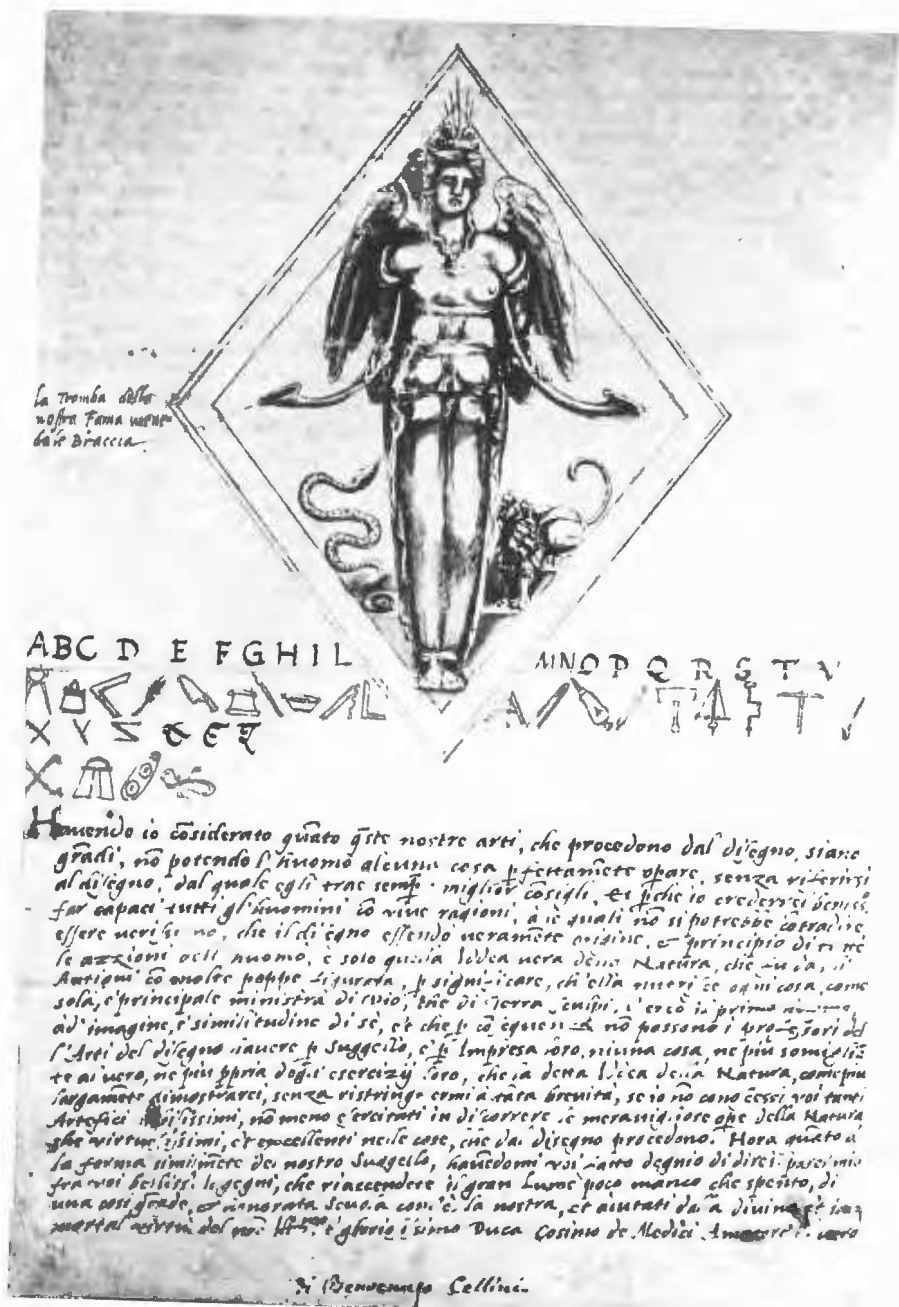 la Tromba della
nostra Fama
Braccia
A B C D E F G H I L
M N O P Q R S T V
X Y Z
Hauendo io cōsiderato quāto q̄ste nostre arti, che procedono dal disegno, siano
gradi, nō potendo l'huomo alcuna cosa p̱fettamēte op̱are, senza riferirsi
al disegno, dal quale egli trae semp̱ miglior cōsigli, Et p̱che io crederrei beniss.
far capaci tutti gl'huomini cō viue ragioni, à le quali nō si potrebbe cōtradire,
essere il disegno essendo veramēte origine, et principio di tutte
le azzioni dell huomo, è solo quella Iddea vera della Natura, che fu da li
Antiqui cō molte poppe figurata, p̱ significare, ch'ella nutrisce ogni cosa, come
sola, e' principale ministra di che di terra il primo
ad' imagine, e' similitudine di sè, e't che p̱ cōseguenza nō possono i professori del
l'Arti del disegno hauere p̱ Suggello, e' p̱ Impresa loro, niuna cosa, ne più
te al vero, ne più p̱pria degl' esercizij loro, che la detta Iddea della Natura, come più
largamēte dimostrarei, senza ristringermi à tāta breuità, se io nō conoscessi voi tanti
Artefici nobilissimi, nō meno esercitati in discorrere le op̱e della Natura
che virtuosissimi, e't eccellenti nelle cose, che dal disegno procedono. Hora quāto à
la forma similmēte del nostro Suggello, hauēdomi voi fatto degnio di dire il parer mio
fra voi belliss. Ingegni, che riaccendere il gran Lume poco manco che spēnto, di
una cosi grāde, et honorata Scuola com'è la nostra, et aiutati da la diuina et im
mortal virtù del e' gloriosissimo Duca Cosimo de Medici Amatore vero
Di Benvenuto Cellini